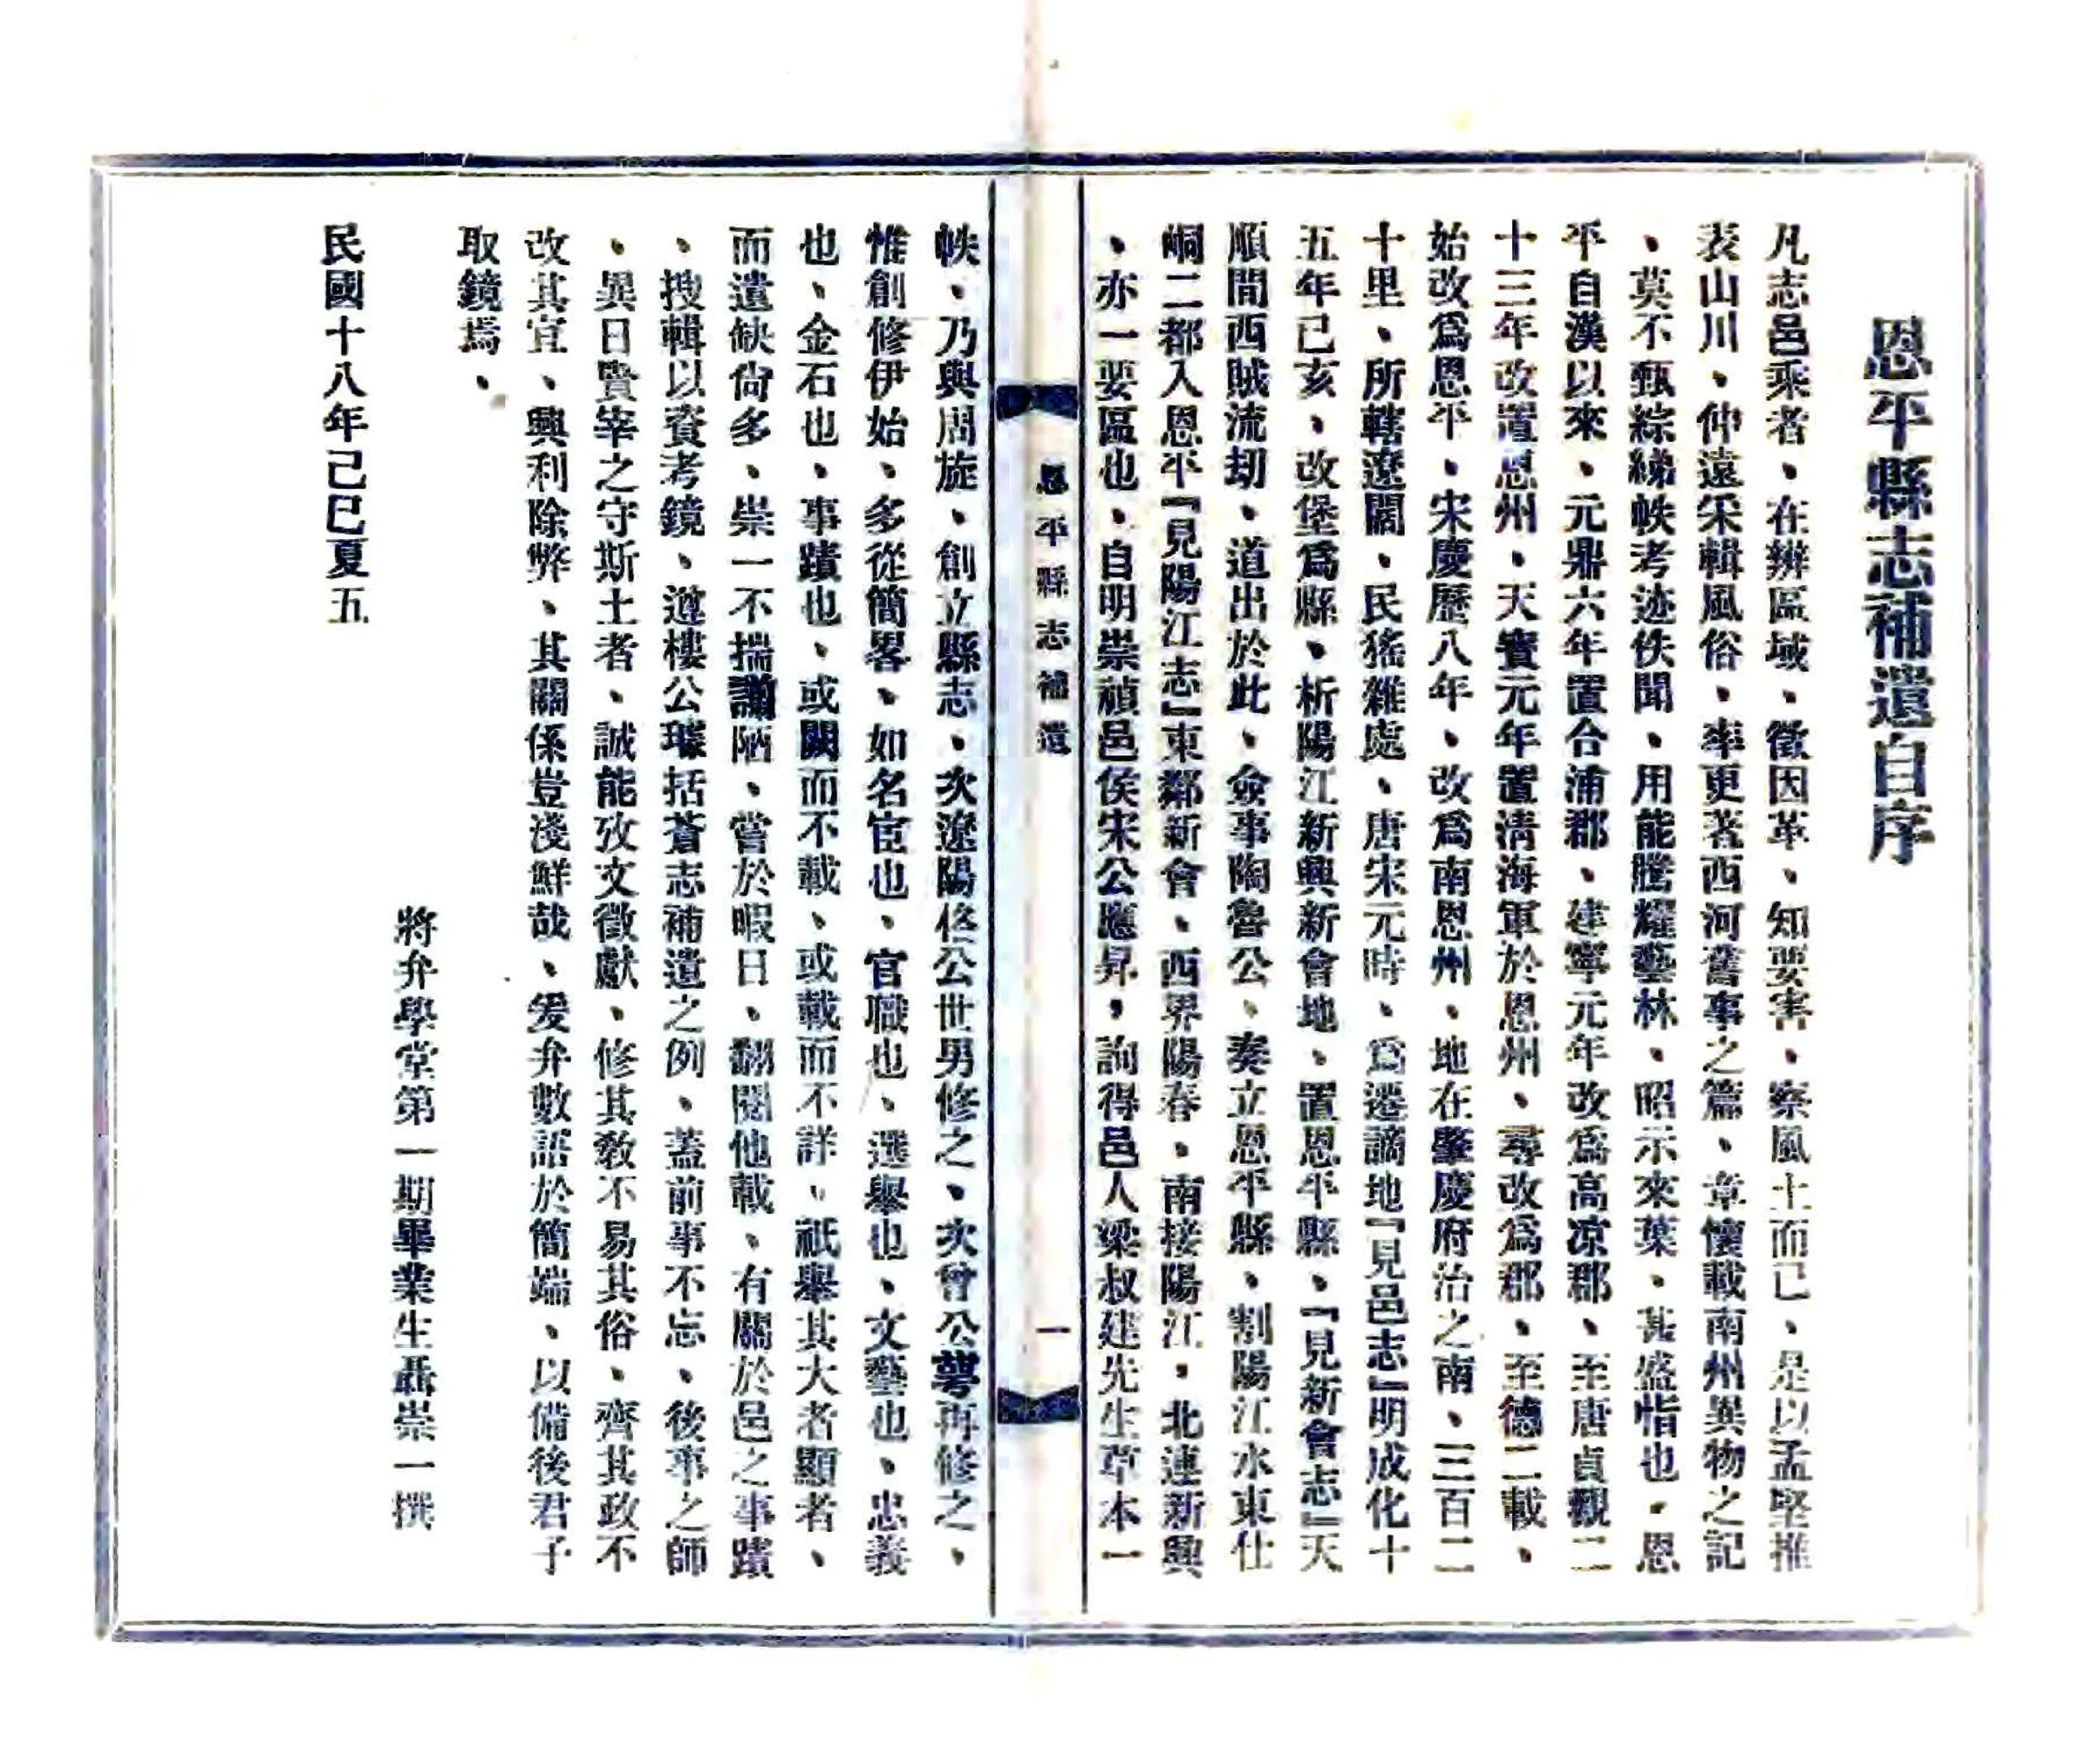 恩平縣志補遺自序
凡志邑乘者、在辨區域、徵因革、知要害、察風土而已、是以孟堅推
表山川、仲遠采輯風俗、率更著西河舊事之篇、章懷載南州異物之記
、莫不甄綜綈帙考迹佚聞、用能騰耀藝林、昭示來葉、甚盛恉也。恩
平自漢以來、元鼎六年置合浦郡、建寧元年改爲高凉郡、至唐貞觀二
十三年改置恩州、天寶元年置清海軍於恩州、尋改爲郡、至德二載、
始改爲恩平、宋慶歷八年、改爲南恩州、地在肇慶府治之南、三百二
十里、所轄遼闊、民猺雜處、唐宋元時、爲遷謫地『見邑志』明成化十
五年己亥、改堡爲縣、析陽江新興新會地、置恩平縣、『見新會志』天
順間西賊流刼、道出於此、僉事陶魯公、奏立恩平縣、割陽江水東仕
峒二都入恩平『見陽江志』東鄰新會、西界陽春、南接陽江、北連新興
、亦一要區也、自明崇禎邑侯宋公應昇，詢得邑人梁叔建先生草本一
恩平縣志補遺
一
帙、乃與周旋、創立縣志、次遼陽佟公世男修之、次曾公萼再修之、
惟創修伊始、多從簡畧、如名宦也、官職也、選舉也、文藝也、忠義
也、金石也、事蹟也、或闕而不載、或載而不詳、祇舉其大者顯者、
而遺缺尙多、崇一不揣譾陋、嘗於暇日、翻閱他載、有關於邑之事蹟
、搜輯以資考鏡、遵樓公璩括蒼志補遺之例、蓋前事不忘、後事之師
、異日賢宰之守斯土者、誠能攷文徵獻、修其敎不易其俗、齊其政不
改其宜、興利除弊、其關係豈淺鮮哉、爰弁數語於簡端、以備後君子
取鏡焉、
將弁學堂第一期畢業生聶崇一撰
民國十八年己巳夏五